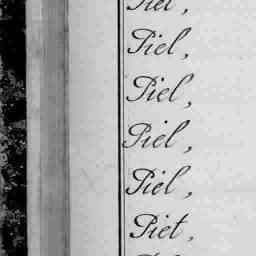 Piel,
Piel,
Piel,
Piel,
Piel,
Piet,